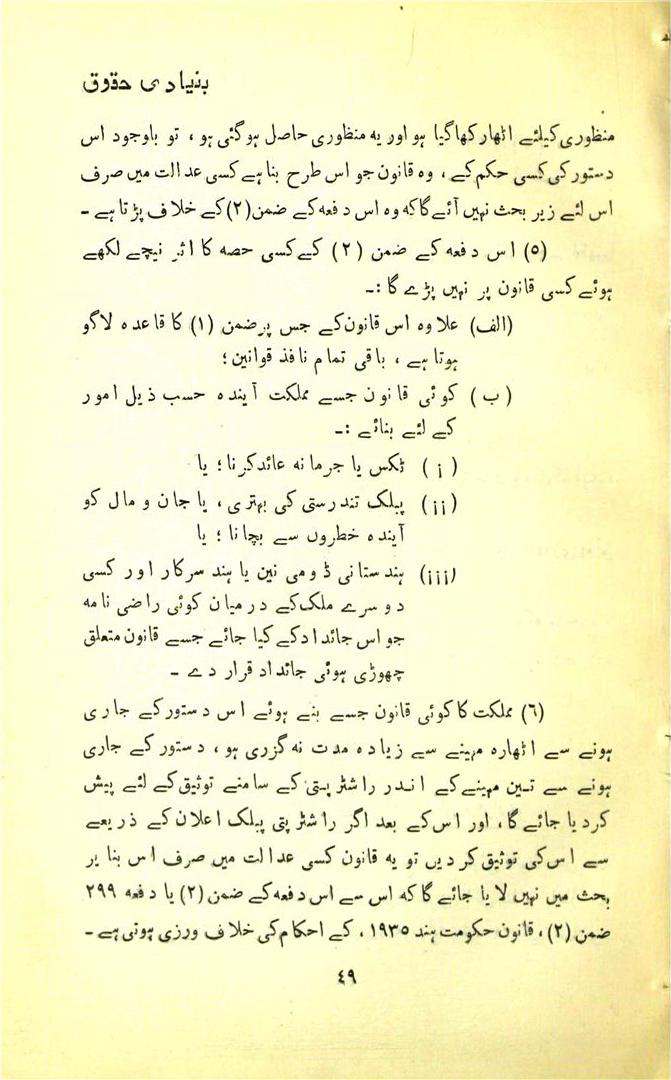 بنیادی حقوق
منظوری کیلئے اٹھا رکھا گیا ہو اور یہ منظوری حاصل ہوگئی ہو ، تو باوجود اس
دستور کی کسی حکم کے ، وہ قانون جو اس طرح بنا ہے کسی عدالت میں صرف
اس لئے زیر بحث نہیں آئے گا کہ وہ اس دفعہ کے ضمن (۲) کے خلاف پڑتا ہے ۔
(۵) اس دفعہ کے ضمن (۲) کے کسی حصہ کا اثر نیچے لکھے
ہوئے کسی قانون پر نہیں پڑے گا :۔
(الف) علاوہ اس قانون کے جس پر ضمن (۱) کا قاعدہ لاگو
ہوتا ہے ، باقی تمام نافذ قوانین ؛
(ب) کوئی قانون جسے مملکت آیندہ حسب ذیل امور
کے لئے بنائے :۔
(i) ٹکس یا جرمانہ عائد کرنا ؛ یا
(ii) پبلک تندرستی کی بہتری ، یا جان و مال کو
آیندہ خطروں سے بچانا ؛ یا
(iii) ہندستانی ڈومی نین یا ہند سرکار اور کسی
دوسرے ملک کے درمیان کوئی راضی نامہ
جو اس جائداد کے کیا جائے جسے قانون متعلق
چھوڑی ہوئی جائداد قرار دے ۔
(٦) مملکت کا کوئی قانون جسے بنے ہوئے اس دستور کے جاری
ہونے سے اٹھارہ مہینے سے زیادہ مدت نہ گزری ہو ، دستور کے جاری
ہونے سے تین مہینے کے اندر راشٹرپتی کے سامنے توثیق کے لئے پیش
کردیا جائے گا ، اور اس کے بعد اگر راشٹرپتی پبلک اعلان کے ذریعے
سے اس کی توثیق کردیں تو یہ قانون کسی عدالت میں صرف اس بنا پر
بحث میں نہیں لایا جائے گا کہ اس سے اس دفعہ کے ضمن (۲) یا دفعہ ۲۹۹
ضمن (۲) ، قانون حکومت ہند ۱۹۳۵ ، کے احکام کی خلاف ورزی ہوتی ہے ۔
٤٩